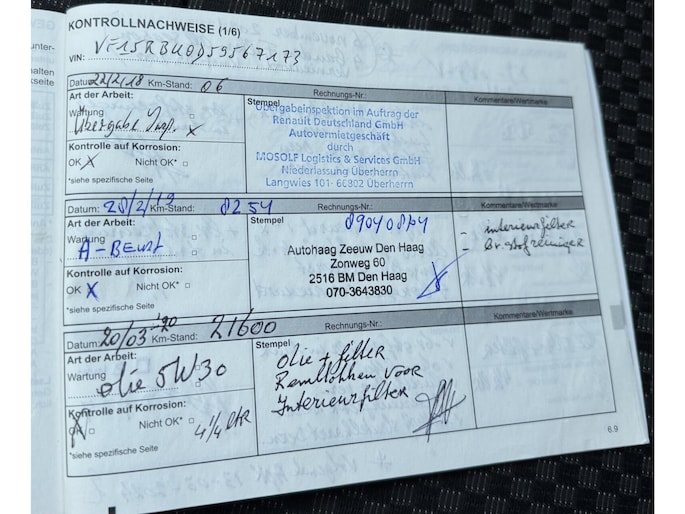 KONTROLLNACHWEISE (1/6)
VIN: VF15RBU0D59567173
Datum: 22/2/18 Km-Stand: 06 Rechnungs-Nr.: Kommentare/Wertmarke
Art der Arbeit:
Wartung
Übergabe Insp. x
Kontrolle auf Korrosion:
OK X Nicht OK*
*siehe spezifische Seite
Stempel
Übergabeinspektion im Auftrag der
Renault Deutschland GmbH
Autovermietgeschäft
durch
MOSOLF Logistics & Services GmbH
Niederlassung Überherrn
Langwies 101- 66802 Überherrn
Datum: 28/2/19 Km-Stand: 8254 Rechnungs-Nr.: Kommentare/Wertmarke
Art der Arbeit:
Wartung
A-Beurt
Kontrolle auf Korrosion:
OK X Nicht OK*
*siehe spezifische Seite
Stempel
Autohaag Zeeuw Den Haag
Zonweg 60
2516 BM Den Haag
070-3643830
- interieurfilter
- Br. stofreiniger
Datum: 20/03-'20 Km-Stand: 21600 Rechnungs-Nr.: Kommentare/Wertmarke
Art der Arbeit:
Wartung
olie 5W30
Kontrolle auf Korrosion:
OK Nicht OK* 4 1/4 ltr
*siehe spezifische Seite
Stempel
olie + filter
Remblokken voor
Interieurfilter
6.9
unter-
halten
kseite